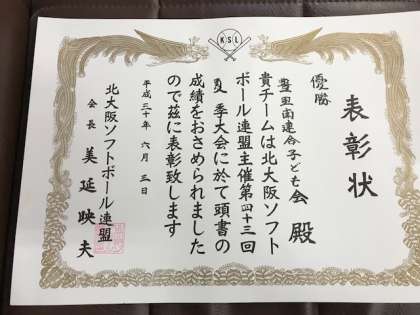 KSL
表彰状
優勝
豊里南連合子ども会 殿
貴チームは北大阪ソフト
ボール連盟主催第四十三回
夏季大会に於て頭書の
成績をおさめられました
ので茲に表彰致します
平成三十年 六月 三日
北大阪ソフトボール連盟
会長 美延映夫